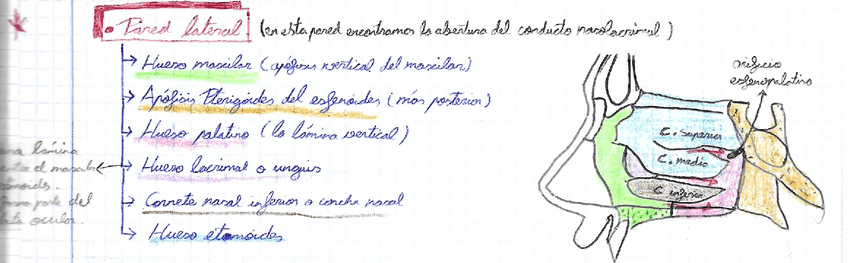 • Pared lateral (en esta pared encontramos la abertura del conducto nasolacrimal)
→ Hueso maxilar (apófisis vertical del maxilar)
→ Apófisis Pterigoides del esfenoides (más posterior)
→ Hueso palatino (la lámina vertical)
→ Hueso lacrimal o unguis
→ Cornete nasal inferior o concha nasal
→ Hueso etmoides
lámina
el
parte del
ocular.
orificio
esfenopalatino
C. Superior
C. medio
C. inferior